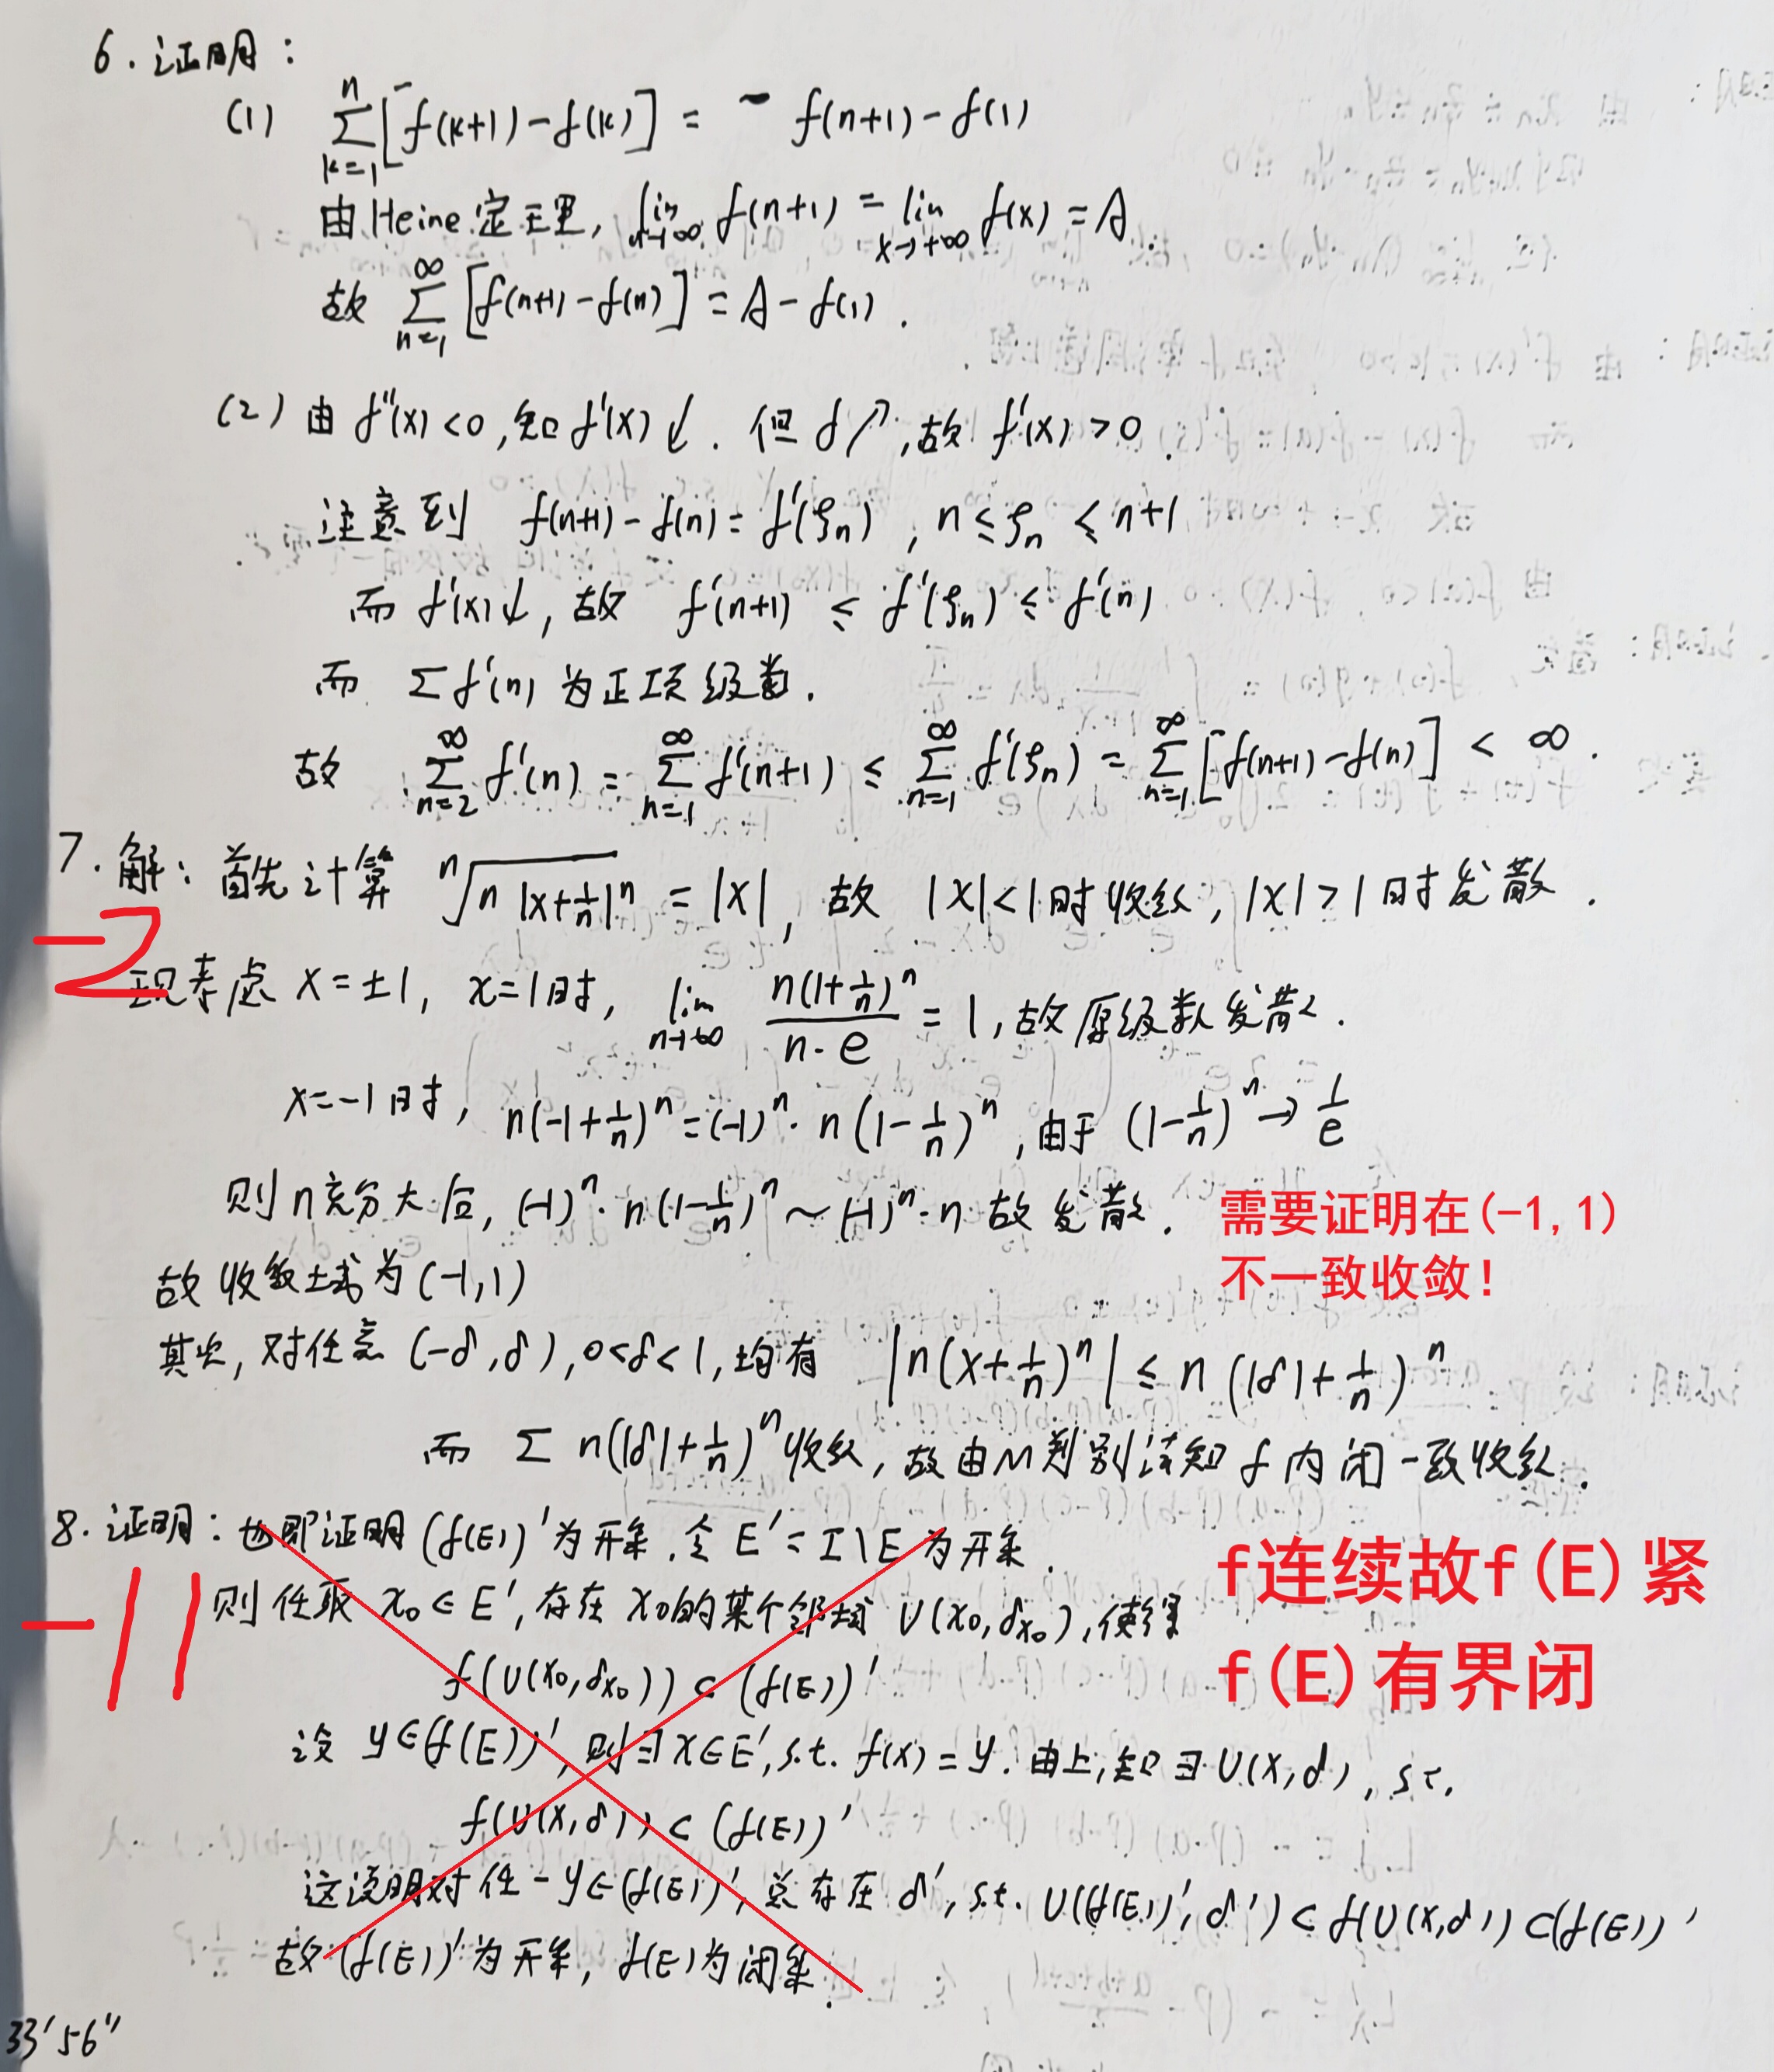 6. 证明：
(1) \sum_{k=1}^{n}[f(k+1)-f(k)] = f(n+1)-f(1)
由Heine定理, \lim_{n→∞} f(n+1) = \lim_{x→+∞} f(x) = A.
故 \sum_{n=1}^{∞}[f(n+1)-f(n)] = A-f(1).
(2) 由 f''(x)<0, 知 f'(x)↓. 但 f↗, 故 f'(x)>0.
注意到 f(n+1)-f(n)=f'(ξ_n), n≤ξ_n≤n+1
而 f'(x)↓, 故 f'(n+1) ≤ f'(ξ_n) ≤ f'(n)
而 Σf'(n) 为正项级数.
故 \sum_{n=2}^{∞} f'(n) = \sum_{n=1}^{∞} f'(n+1) ≤ \sum_{n=1}^{∞} f'(ξ_n) = \sum_{n=1}^{∞}[f(n+1)-f(n)] < ∞.
7. 解：首先计算 \sqrt[n]{n|x+\frac{1}{n}|^n} = |x|, 故 |x|<1时收敛, |x|>1时发散.
-2
现考虑 x=±1, x=1时, \lim_{n→∞} \frac{n(1+\frac{1}{n})^n}{n·e} = 1, 故原级数发散.
x=-1时, n(-1+\frac{1}{n})^n=(-1)^n·n(1-\frac{1}{n})^n, 由于 (1-\frac{1}{n})^n→\frac{1}{e}
则n充分大后, (-1)^n·n(1-\frac{1}{n})^n～(-1)^n·n 故发散.
需要证明在(-1,1)
不一致收敛！
故收敛域为(-1,1)
其次, 对任意 (-δ,δ), 0<δ<1, 均有 |n(x+\frac{1}{n})^n| ≤ n(|δ|+\frac{1}{n})^n
而 Σ n(|δ|+\frac{1}{n})^n 收敛, 故由M判别法知 f 内闭一致收敛.
8. 证明：也即证明 (f(E))' 为开集. 令 E'=I\E 为开集.
-11
则任取 x_0∈E', 存在 x_0的某个邻域 U(x_0,δ_{x_0}), 使得
f(U(x_0,δ_{x_0}))⊂(f(E))'
f连续故f(E)紧
f(E)有界闭
设 y∈(f(E))', 则∃x∈E', s.t. f(x)=y. 由上, 知∃U(x,δ), s.t.
f(U(x,δ))⊂(f(E))'
这说明对任一 y∈(f(E))', 总存在 δ', s.t. U((f(E))',δ')⊂f(U(x,δ))⊂(f(E))'
故 (f(E))' 为开集, f(E)为闭集.
33'56"